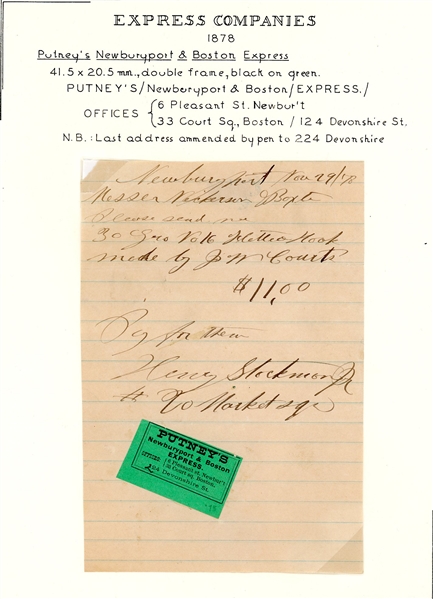 EXPRESS COMPANIES
1878
Putney's Newburyport & Boston Express
41.5 x 20.5 mm., double frame, black on green.
PUTNEY'S/Newburyport & Boston/EXPRESS./
OFFICES {6 Pleasant St. Newbur't
{33 Court Sq., Boston / 124 Devonshire St.
N.B.: Last address ammended by pen to 224 Devonshire
Newburyport Nov 29/78
Messer Nickerson & Baxter
Please send me
30 Gro No 16 Hook
made by J W Courts
$11,00
Pay for them
Henry Stockman Jr
20 Market sqr
PUTNEY'S
Newburyport & Boston
EXPRESS.
OFFICES { 6 Pleasant st. Newbur't
33 Court sq. Boston.
224 Devonshire St.